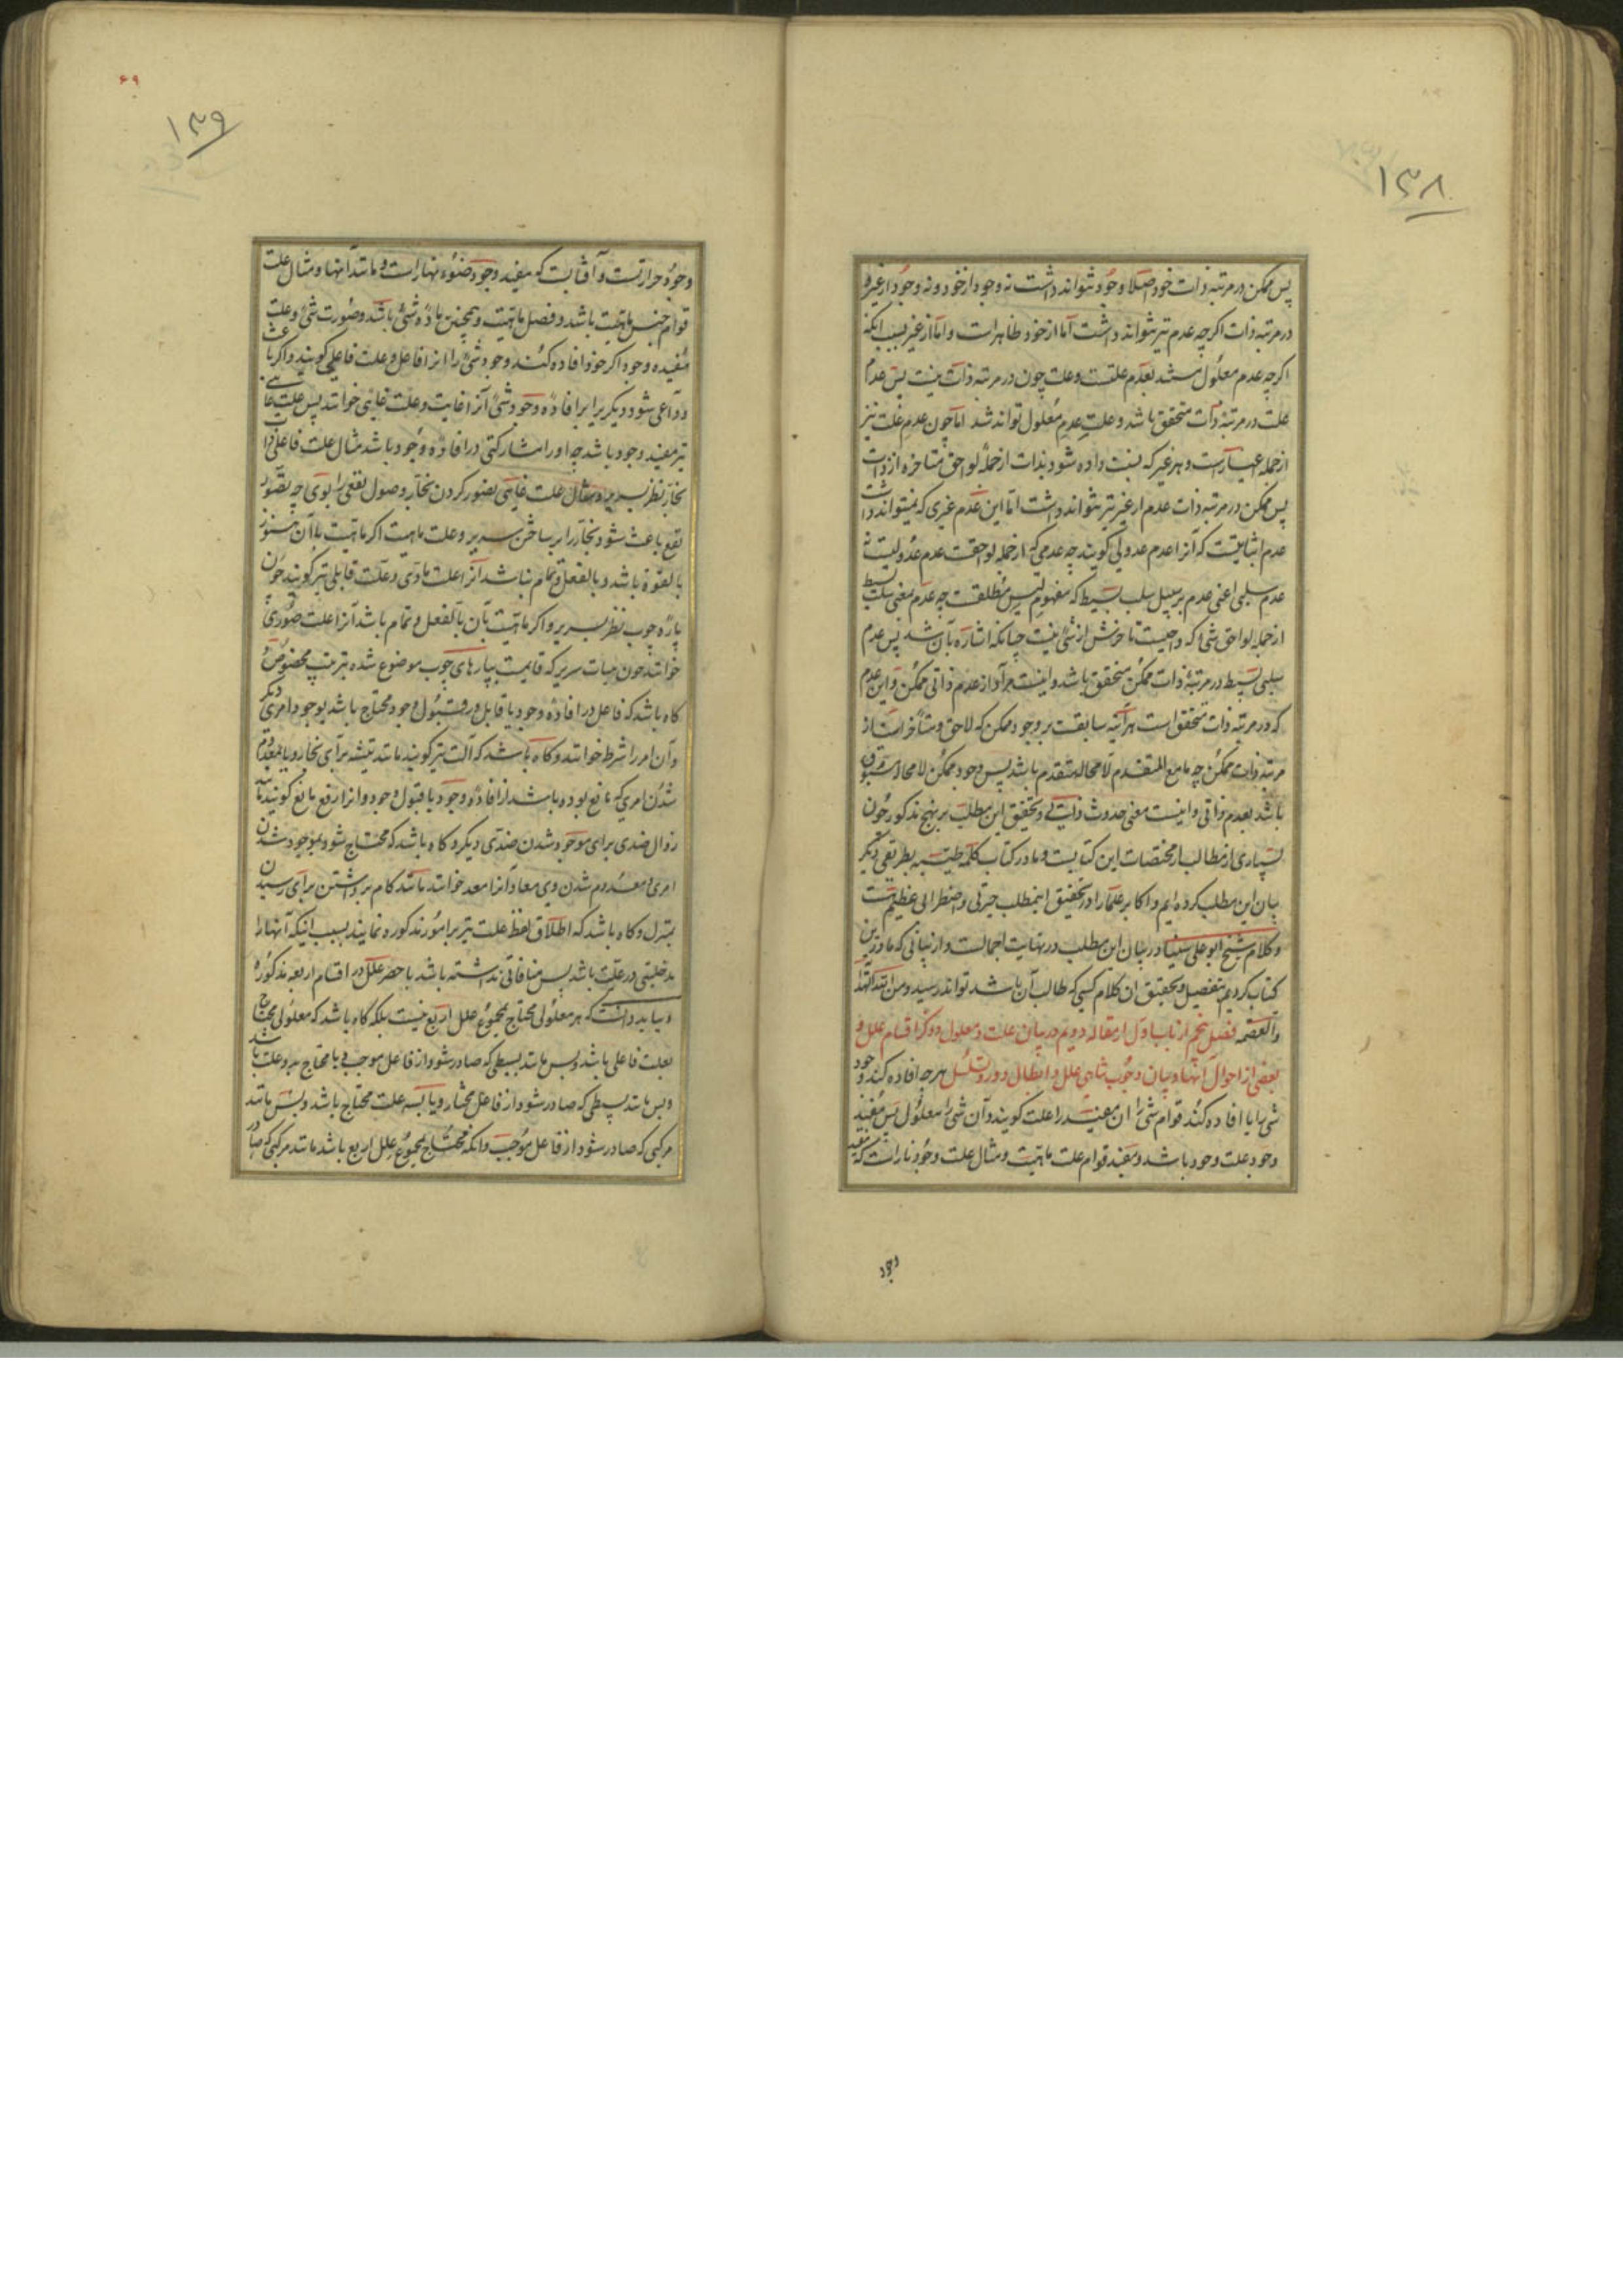 ۱۳۸
پس ممکن در مرتبه ذات خود اصلا وجود نتواند داشت نه وجود از خود و نه وجود از غیر و
در مرتبه ذات اکرچه عدم نیز نتواند داشت اما از خود ظاهر است و اما از غیر بسبب انکه
اکرچه عدم معلول مستند بعدم علتست و علت چون در مرتبه ذات نیست پس عدم
علت در مرتبه ذات متحقق باشد و علت عدم معلول تواند شد اما چون عدم علت نیز
از جمله اغیار است و هر غیر که نسبت داده شود بذات از جمله لواحق متاخره از ذات است
پس ممکن در مرتبه ذات عدم از غیر نیز نتواند داشت اما این عدم غیری که نمیتواند داشت
عدم اثباتیست که آنرا عدم عدولی کویند چه عدمی که از جمله لواحقست عدم عدولیست نه
عدم سلبی اعنی عدم بر سبیل سلب بسیط که مفهوم لیس مطلقست چه عدم بمعنی سلب بسیط
از جمله لواحق شی که واجبست تاخرش از شی نیست چنانکه اشاره بآن شد پس عدم
سلبی بسیط در مرتبه ذات ممکن متحقق باشد و اینست مراد از عدم ذاتی ممکن و این عدم
که در مرتبه ذات متحقق است هرآینه سابقست بر وجود ممکن که لاحق و متاخر است از
مرتبه ذات ممکن چه ما مع المتقدم لامحاله متقدم باشد پس وجود ممکن لامحاله مسبوق
باشد بعدم ذاتی و اینست معنی حدوث ذاتی و تحقیق این مطلب بر نهج مذکور چون
بسیاری از مطالب از مختصات این کتابست و ما در کتاب کلمه طیبه بطریقی دیکر
بیان این مطلب کرده ایم و اکابر علما را در تحقیق اینمطلب حیرتی و اضطرابی عظیم است
و کلام شیخ ابو علی سینا در بیان این مطلب در نهایت اجمالست و از بیانی که ما درین
کتاب کردیم بتفصیل و تحقیق ان کلام کسی که طالب آن باشد تواند رسید و من الله الهدایة
والعصمه فصل پنجم از باب اول از مقاله دویم در بیان علت و معلول و ذکر اقسام علل و
بعضی از احوال انها و بیان وجوب تناهی علل و ابطال دور و تسلسل هرچه افاده کند وجود
شی را یا افاده کند قوام شی را ان مفید را علت کویند و آن شی را معلول پس مفید
وجود علت وجود باشد و مفید قوام علت ماهیت و مثال علت وجود نار است که مفید
وجود
۶۹
۱۳۹
وجود حرارتست و آفتابست که مفید وجود ضوء نهار است و مانند انها و مثال علت
قوام جنس ماهیت باشد و فصل ماهیت و همچنین ماده شی باشد و صورت شی و علت
مفیده وجود اکر خود افاده کند وجود شی را انرا فاعل و علت فاعلی کویند و اکر باعث
و داعی شود دیکریرا بر افاده وجود شی آنرا غایت و علت غایی خوانند پس علت غایی
نیز مفید وجود باشد چه او را مشارکتی در افاده وجود باشد مثال علت فاعلی را
نجار نظر بسریر و مثال علت غایی تصور کردن نجار وصول نفعی را بوی چه تصور
نفع باعث شود نجار را بر ساختن سریر و علت ماهیت اکر ماهیت با آن هنوز
بالقوة باشد و بالفعل و تمام نباشد آنرا علت مادی و علت قابلی نیز کویند چون
پاره چوب نظر بسریر و اکر ماهیت بآن بالفعل و تمام باشد آنرا علت صوری
خوانند چون هیات سریر که قایمست بپارهای چوب موضوع شده بترتیب مخصوص
کاه باشد که فاعل در افاده وجود یا قابل در قبول وجود محتاج باشد بوجود امری دیکر
و آن امر را شرط خوانند و کاه باشد که آلت نیز کویند مانند تیشه برای نجار و یا بمعدوم
شدن امری که مانع بوده باشد از افاده وجود یا قبول وجود و انرا رفع مانع کویند مانند
زوال ضدی برای موجود شدن ضدی دیکر و کاه باشد که محتاج شود بموجود شدن
امری و معدوم شدن وی معا و آنرا معد خوانند مانند کام برداشتن برای رسیدن
بمنزل و کاه باشد که اطلاق لفظ علت نیز بر امور مذکوره نمایند بسبب اینکه آنها را
مدخلیتی در علیت باشد پس منافاتی نداشته باشد با حصر علل در اقسام اربعه مذکوره
و بباید دانست که هر معلولی محتاج بمجموع علل اربع نیست بلکه کاه باشد که معلولی محتاج
بعلت فاعلی باشد و بس مانند بسیطی که صادر شود از فاعل موجب و یا محتاج بدو علت باشد
و بس مانند بسیطی که صادر شود از فاعل مختار و یا بسه علت محتاج باشد و بس مانند
مرکبی که صادر شود از فاعل موجب و انکه محتاج بمجموع علل اربع باشد مانند مرکبی که صادر